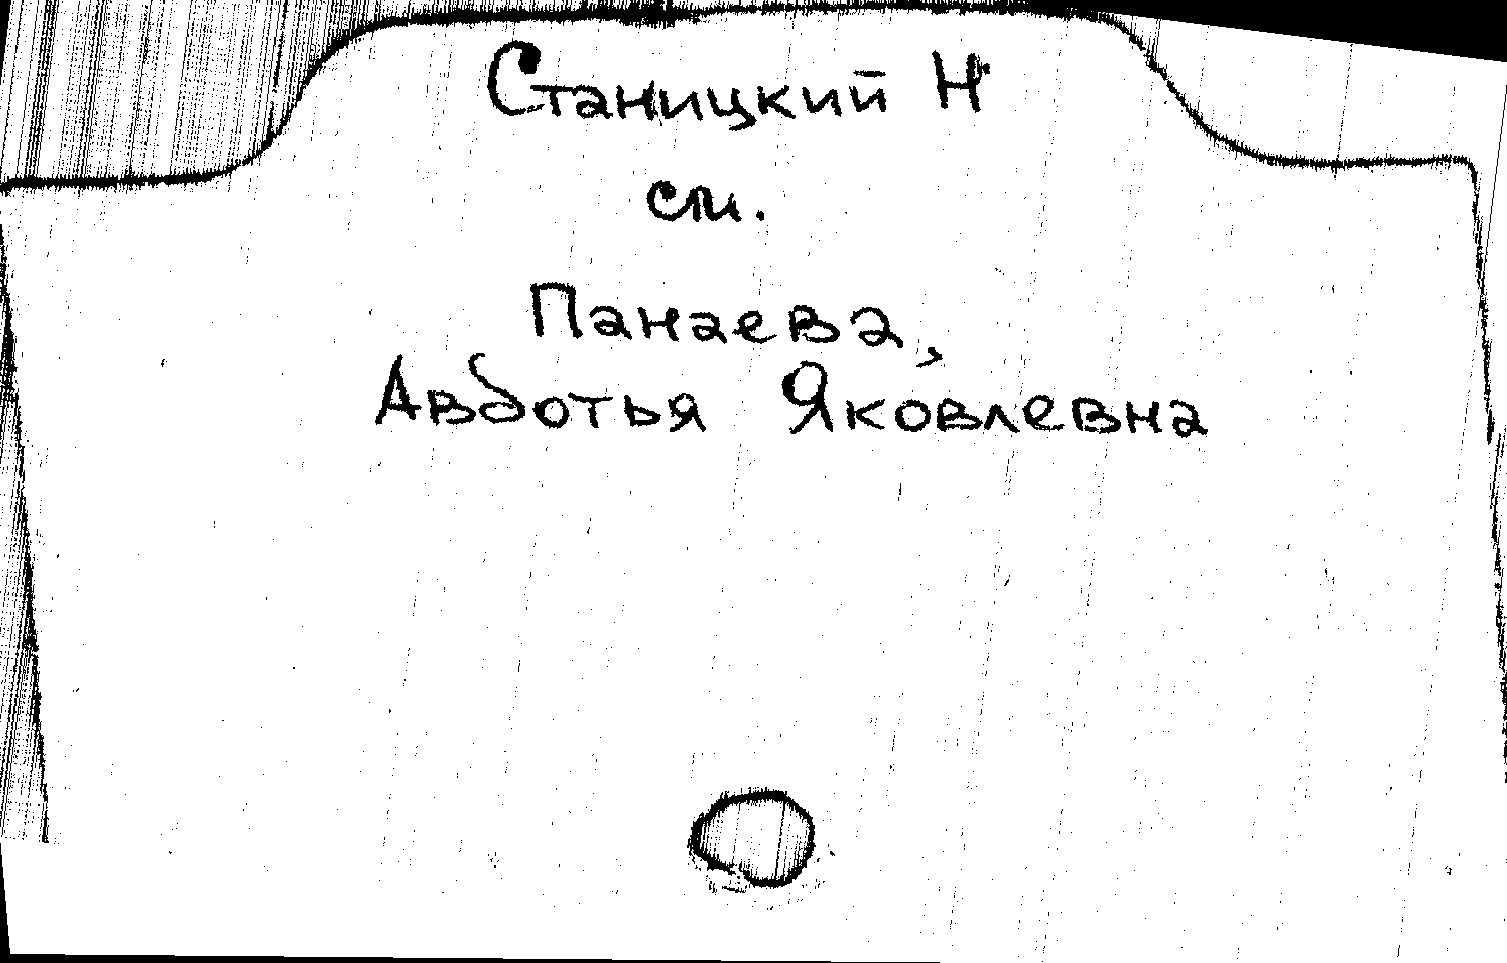 Станицкий Н.
см.
Панаева,
Авдотья Яковлевна